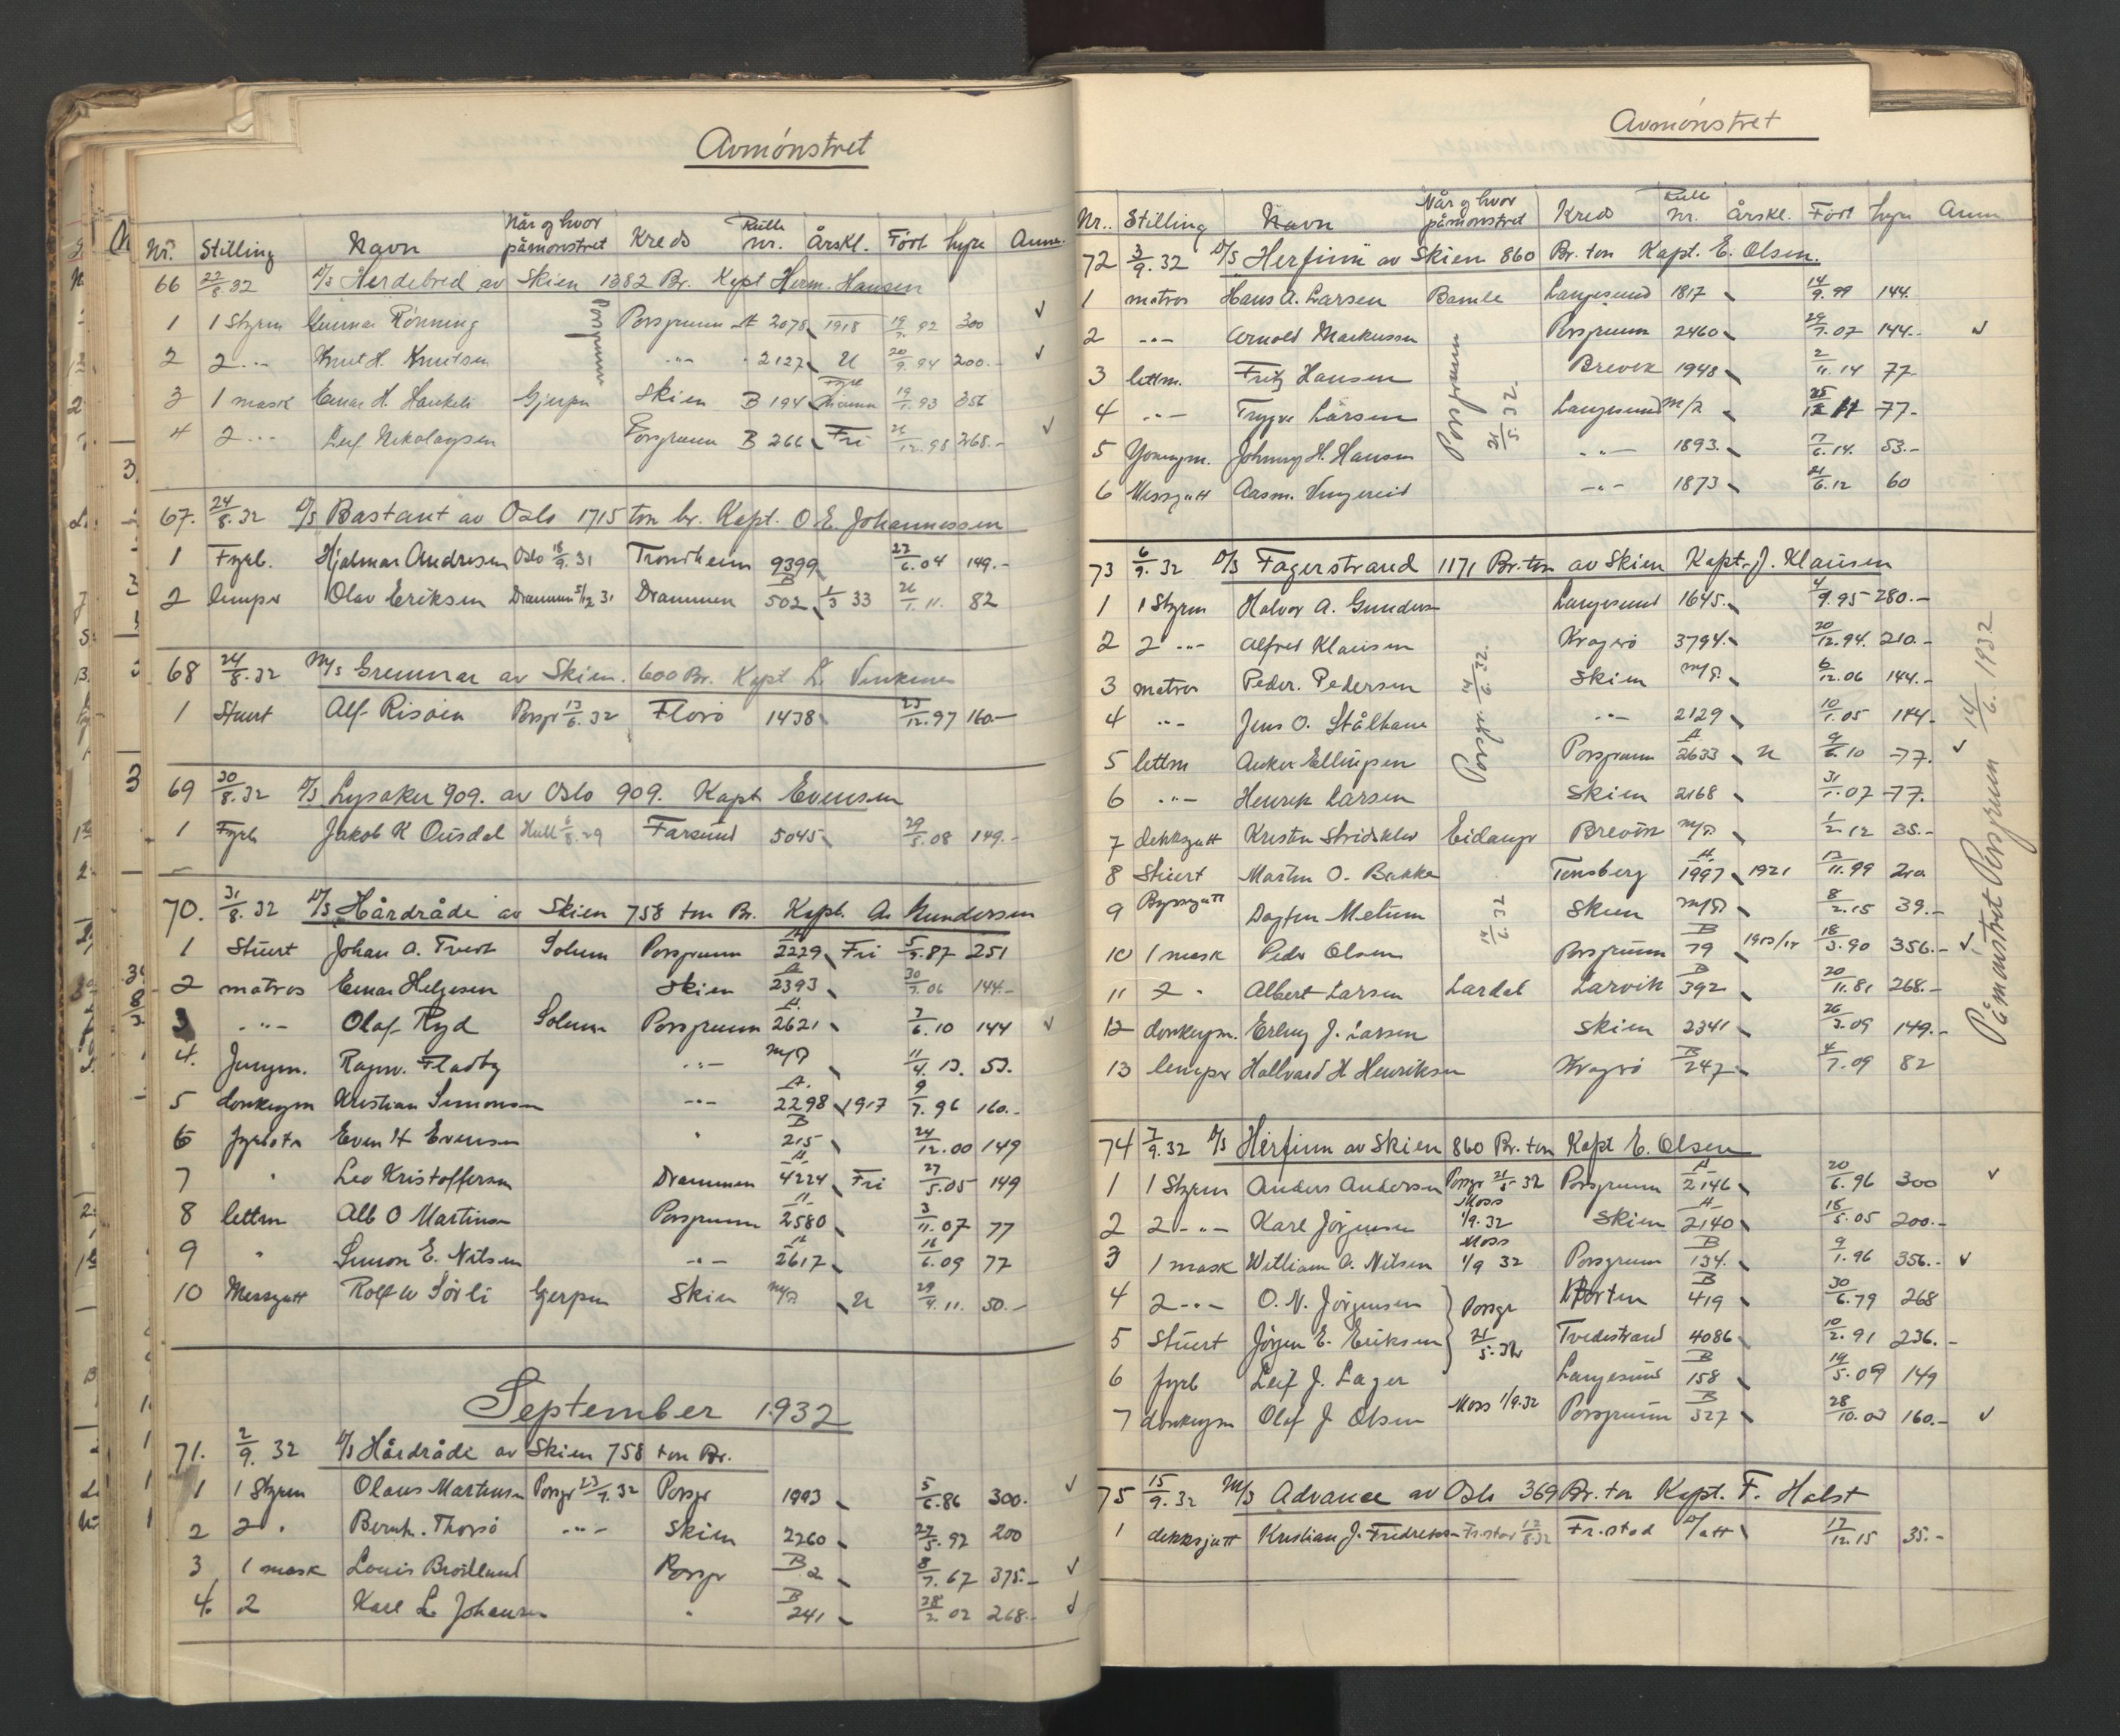 Avmønstret
Nr. Stilling Navn Når og hvor påmønstret Kreds Rulle nr. Årskl. Født hyre Anm.
66 22/8 32 D/S Herdebred av Skien 1382 Br. Kapt Herm. Hansen
1 1 Styrm Gunnar Rønning Porsgrunn Porsgrunn A 2078 1918 19/7. 92 300 ✓
2 2 -"- Knut H. Knutsen -"- " 2127 U 20/9. 94 200.- ✓
3 1 mask Einar H. Haukeli Gjerpn Skien B 194 19/1. 93 356
4 2 -"- Leif Nikolaysen Porsgrunn B 266 Fri /12. 98 268.- ✓
67. 24/8. 32 D/S Bastant av Oslo 1715 ton br. Kapt. O. E. Johannessen
1 Fyrb. Hjalmar Andresen Oslo 18/9. 31 Trondheim 9399 23/6. 04 149.-
2 lemper Olav Eriksen Drammen 5/12 31 Drammen B 502 1/3 33 /1. 11. 82
68 24/8. 32 M/S Gremmar av Skien. 600 Br. Kapt L.
1 Stuert Alf Risøen Porsgr 13/6. 32 Florø 1438 23/12. 97 160.-
69 30/8. 32 D/S Lysaker 909. av Oslo 909. Kapt Evensen
1 Fyrb Jakob K Ousdal Hull 6/8. 29 Farsund 5045 29/5. 08 149.-
70. 31/8. 32 D/S Hårdråde av Skien 758 ton Br. Kapt. A. Gundersen
1 Stuert Johan A. Tveit Solum Porsgrunn A 2229 Fri 5/9. 87 251
2 matros Einar Helgesen Skien A 2393 30/7. 06 144.-
3 -"- Olaf Ryd Solum Porsgrunn A 2621 7/6. 10 144 ✓
4. Jungm. Ragnv. Fladby -"- M/P 11/4. 13. 53.
5 donkeym Kristian Simonsen -"- A. 2298 1917 9/7. 96 160.-
6 fyrbøtr Even H Evensen " B 215 24/12. 00 149
7 " Leo Kristoffersen Drammen A 4224 Fri 27/5. 05 149
8 lettm Alb O Martinsen Porsgrunn A 2580 3/11. 07 77
9 " Simon E. Nilsen -"- A 2617 16/6. 09 77
10 Messgutt Rolf W Sørli Gjerpen Skien M/P U 29/4. 11. 50.-
September 1932
71. 2/9. 32 D/S Hårdråde av Skien 758 ton Br.
1 1 Styrm Olaus Martinsen Porsgr 23/7. 32 Porsgr 1993 5/6. 86 300. ✓
2 2 " Bernh. Thorsø -"- Skien 2260 22/5. 92 200
3 1 mask Louis Brødlund Porsgr B 2 8/7. 67 375.- ✓
4. 2 Karl L. Johansen " B 241 28/2. 02 268.- ✓
Avmønstret
Nr. Stilling Navn Når og hvor påmønstret Kreds Rulle nr. Årskl. Født hyre Anm
72 3/9. 32 D/S Herfinn av Skien 860 Br. ton Kapt. E. Olsen.
1 matros Hans A. Larsen Bamle Langesund 1817 14/9. 99 144.
2 -"- Arnold Markussen Porsgrunn 21/5. 32. Porsgrunn 2460 29/7. 07 144.- ✓
3 lettm. Fritz Hansen Brevik 1948 2/11. 14 77
4 -"- Trygve Larsen Langesund M/P 25/12 77-
5 Youngm. Johnny H. Hansen -"- 1893. 7/6. 14. 53.-
6 Messgutt Aasm. Vingereid -"- 1873 21/6. 12 60
73 6/9. 32 D/S Fagerstrand 1171 Br. ton av Skien Kapt. J. Klausen
1 1 Styrm Halvor A. Gunders Langesund 1645. 4/9. 95 280.-
2 2 -"- Alfred Klausen Kragerø 3794. 20/12. 94. 210.-
3 matros Peder. Pedersen Porsgr. 14/6. 32. Skien M/P. 6/12. 06 144.-
4 -"- Jens O. Stålhane -"- 2129 10/1. 05 144-
5 lettm Anker Ellingsen Porsgrunn A 2633 U 9/6. 10 77. ✓
6 -"- Henrik Larsen Skien 2168 31/1. 07 77.
7 dekksgutt Kristen Stridsklev Eidanger Brevik M/P. 1/2. 12 35.-
8 Stuert Martin O. Bakke Tønsberg A 1997 1921 13/11. 99 210
9 Byssgutt Dagfin Melum 14/6. 32 Skien M/P. 8/2. 15 39.-
10 1 mask Peder Olsen Porsgrunn B 79 18/3. 90 356.- ✓
11 2 " Albert Larsen Lardal Larvik B 392 20/11. 81 268.-
12 donkeym. Erling J. Larsen Skien 2341 26/3. 09 149.-
13 lemper Hallvard H Henriksen Kragerø B 247 4/7. 09 82
Påmønstret Porsgrunn 14/6. 1932
74 7/9. 32 D/S Herfinn av Skien 860 Br. ton Kapt E. Olsen
1 1 Styrm Anders Andersen Porsgr 21/5 32 Porsgrunn A 2146 20/6. 96 300 ✓
2 2 -"- Karl Jørgensen Moss 1/9. 32 Skien A 2140 15/5. 05 200.-
3 1 mask William A. Nilsen Moss 1/9 32 Porsgrunn B 134. 9/1. 96 356.- ✓
4 2 -"- O. N. Jørgensen Porsgr 21/5. 32 Horten B 419 30/6. 79 268
5 Stuert Jørgen E. Eriksen Tvedestrand 4086 10/2. 91 236.-
6 fyrb Leif J. Lager Langesund B 158 19/5. 09 149
7 donkeym Olaf J Olsen Moss 1/9. 32 Porsgrunn B 327 28/10. 03 160.- ✓
75 15/9. 32 M/S Advance av Oslo 369 Br. ton Kapt. F. Holst
1 dekksgutt Kristian J. Fredriksen Fr.stad 12/8. 32 Fr.stad 17/12. 15 35.-